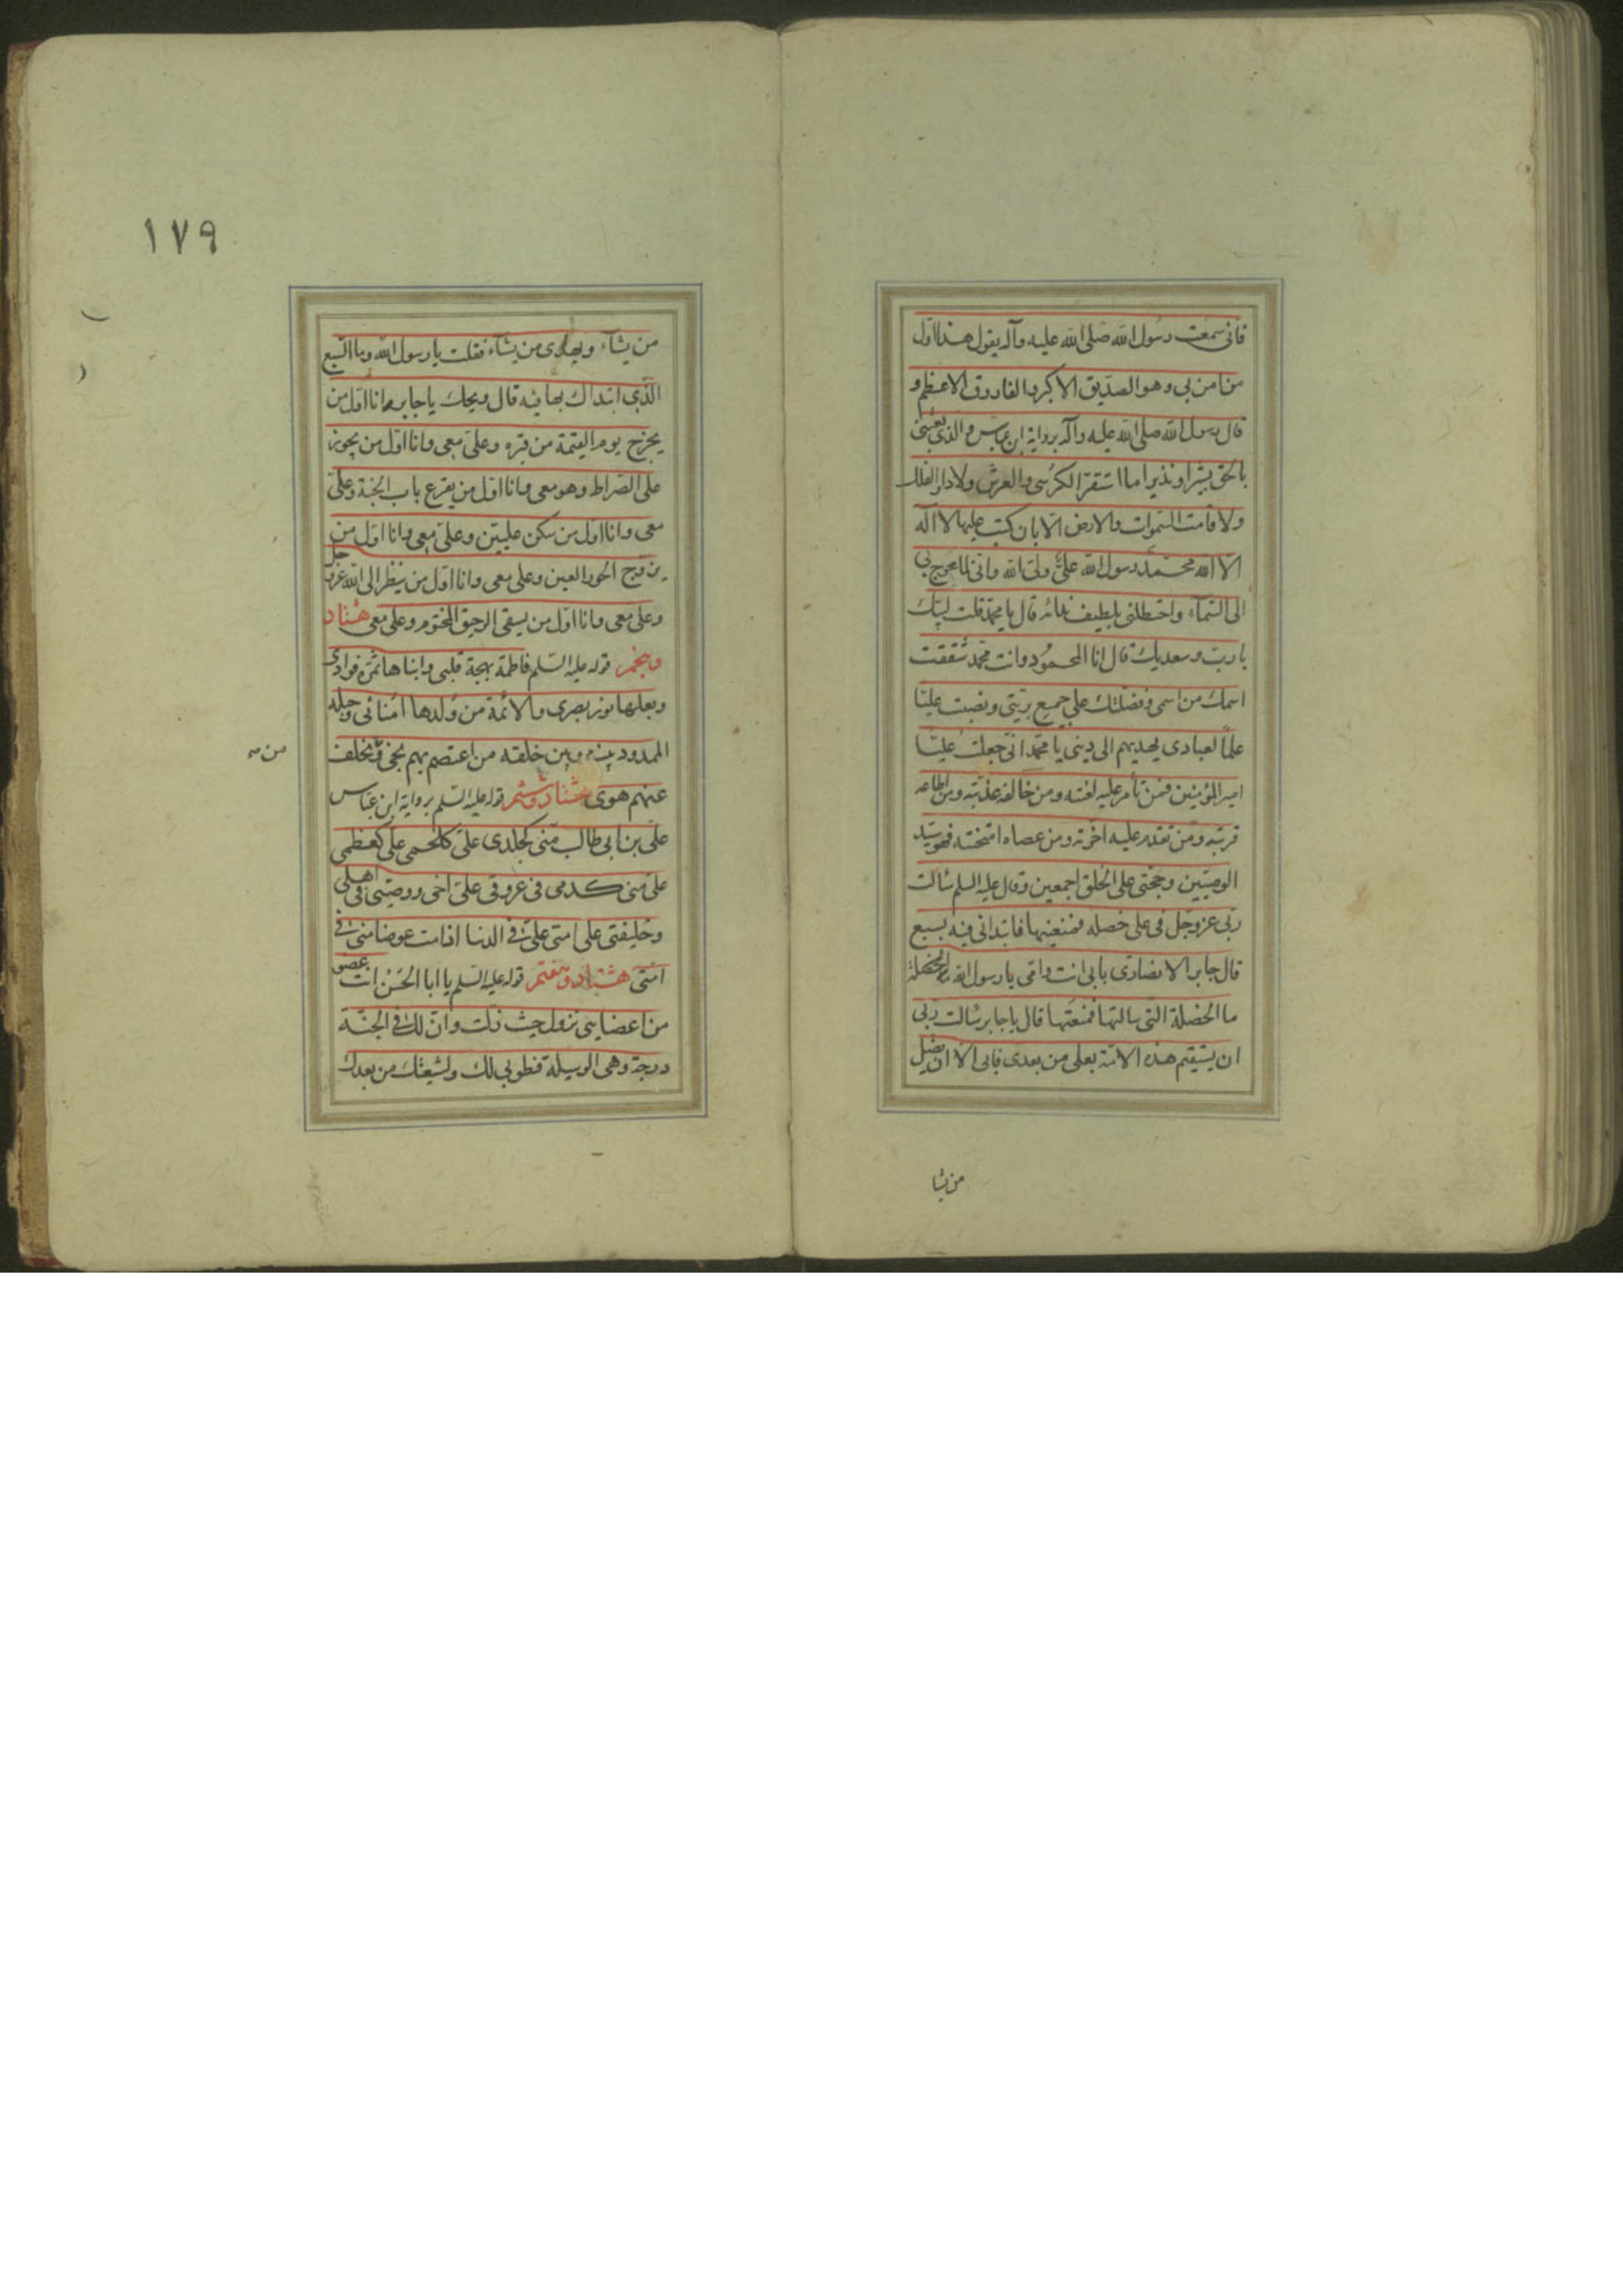 فانی سمعت رسول الله صلی الله علیه وآله یقول هذا اول
من آمن بی وهو الصدیق الاکبر والفاروق الاعظم و
قال رسول الله صلی الله علیه وآله بروایة ابن عباس والذی بعثنی
بالحق بشیرا ونذیرا ما استقر الکرسی والعرش ولا دار الفلک
ولا قامت السموات والارض الا بان کتب علیها لا اله
الا الله محمد رسول الله علی ولی الله وانی لما عرج بی
الی السمآء واختطنی بلطیف ندائه قال یا محمد قلت لبیک
یا رب وسعدیک قال انا المحمود وانت محمد شققت
اسمک من اسمی وفضلتک علی جمیع بریتی ونصبت علیا
علما لعبادی یهدیهم الی دینی یا محمد انی جعلت علیا
امیر المؤمنین فمن تأمر علیه لعنته ومن خالفه عذبته ومن اطاعه
قربته ومن تقدم علیه اخرته ومن عصاه امتحنته فهو سید
الوصیین وحجتی علی الخلق اجمعین وقال علیه السلم سألت
ربی عز وجل فی علی خصله فمنعنیها فابتدانی فیه بسبع
قال جابر الانصاری بابی انت وامی یا رسول الله
ما الخصلة التی سالتها فمنعتها قال یا جابر سالت ربی
ان یستقیم هذه الامة بعلی من بعدی فابی الا ان یضل
من یشا
۱۷۹
من یشآء ویهدی من یشآء فقلت یا رسول الله وما السبع
الذی ابتداک بها فیه قال ویحک یا جابر انا اول من
یخرج یوم القیمة من قبره وعلی معی وانا اول من یجوز
علی الصراط وهو معی وانا اول من یقرع باب الجنة وعلی
معی وانا اول من سکن علیین وعلی معی وانا اول من
یزوج الحور العین وعلی معی وانا اول من ینظر الی الله عز وجل
وعلی معی وانا اول من یسقی الرحیق المختوم وعلی معی هشتاد
وپنجم قوله علیه السلم فاطمة بهجة قلبی وابناها ثمرة فوادی
وبعلها نور بصری والائمة من ولدها امنائی وحبله
الممدود بینه وبین خلقه من اعتصم بهم نجی ومن تخلف
من
عنهم هوی هشتاد وششم قوله علیه السلم بروایة ابن عباس
علی بن ابی طالب منی کجلدی علی کلحمی علی کعظمی
علی منی کدمی فی عروقی علی اخی ووصیی فی اهلی
وخلیفتی علی امتی علی فی الدنیا اذا مت عوضا منی فی
امتی هشتاد وهفتم قوله علیه السلم یا ابا الحسن انت عضو
من اعضایی نزول حیث زلت وان لک فی الجنة
درجة وهی الوسیلة فطوبی لک ولشیعتک من بعدک